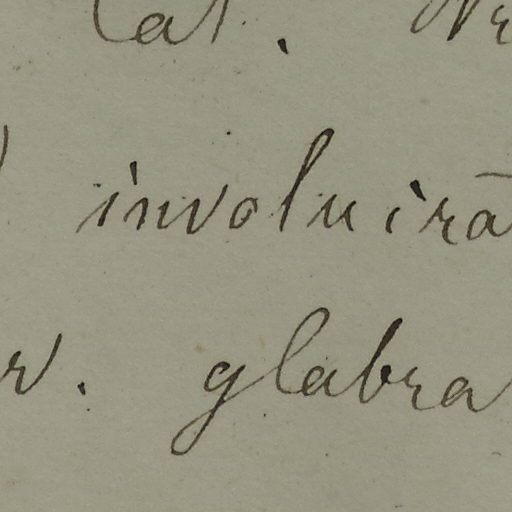 Cat. Ne
involucrā
v. glabra